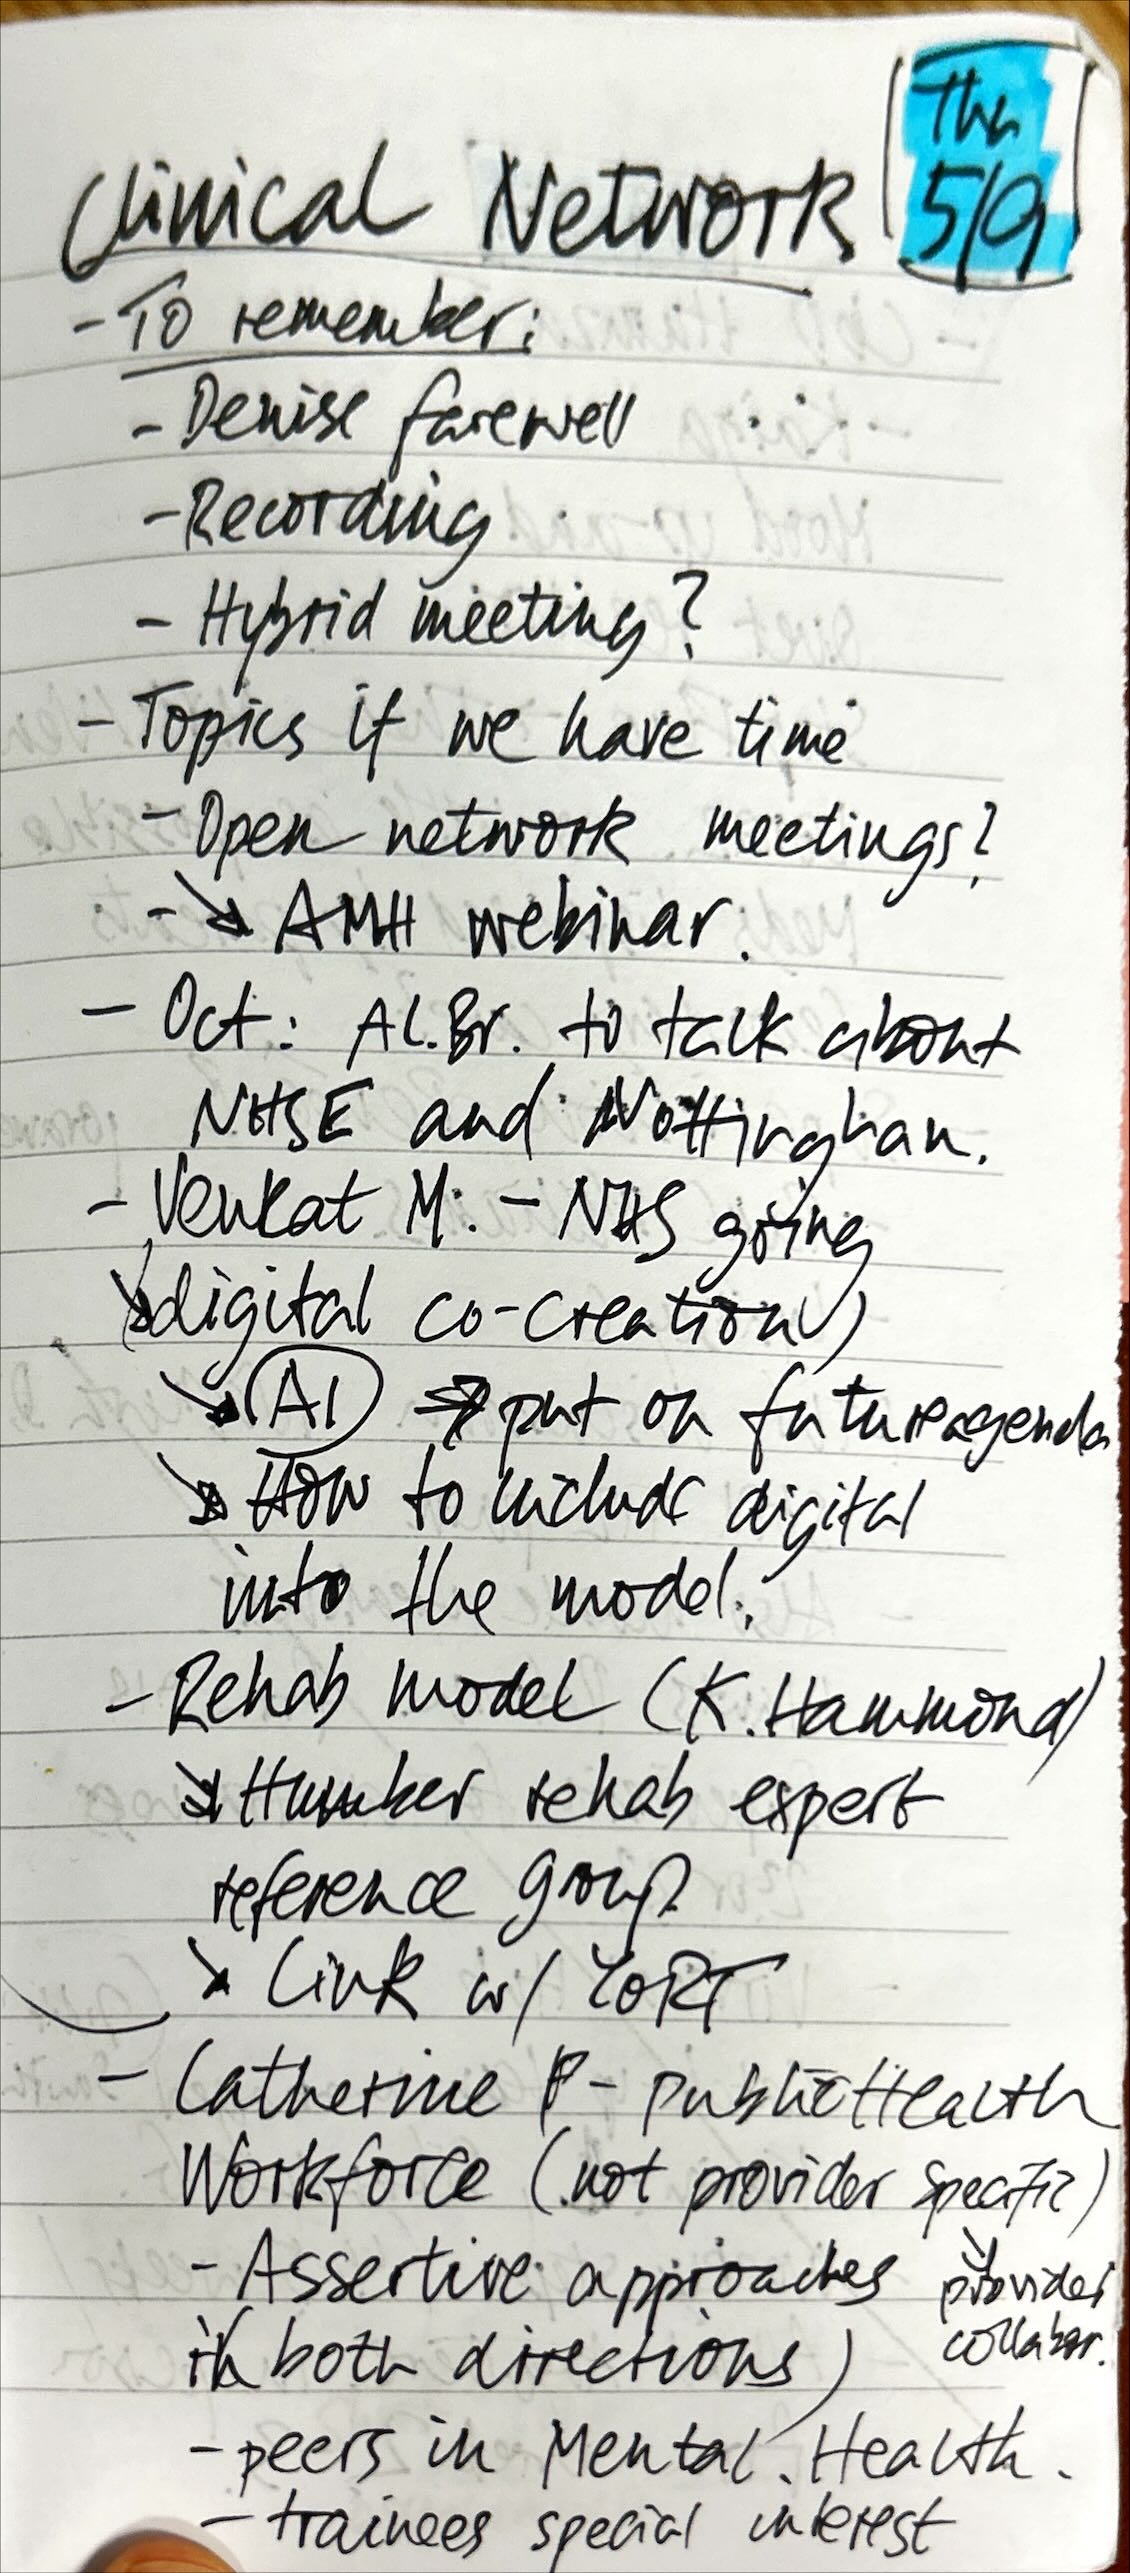 Thu
5/9
Clinical Network
- To remember:
- Denise farewell
- Recording
- Hybrid meeting?
- Topics if we have time
- Open network meetings?
- ↘ AMH webinar.
- Oct: Al.Br. to talk about
NHSE and Nottingham.
- Venkat M. - NHS going
↘ digital co-creation)
↘ AI → put on future agenda
↘ How to include digital
into the model.
- Rehab model (K. Hammond)
↘ Humber rehab expert
reference group
↘ Link w/ YoRT
- Catherine P - Public Health
Workforce (not provider specific)
↘ provider
collabor.
- Assertive approaches
in (both directions)
- peers in Mental Health.
- trainees special interest